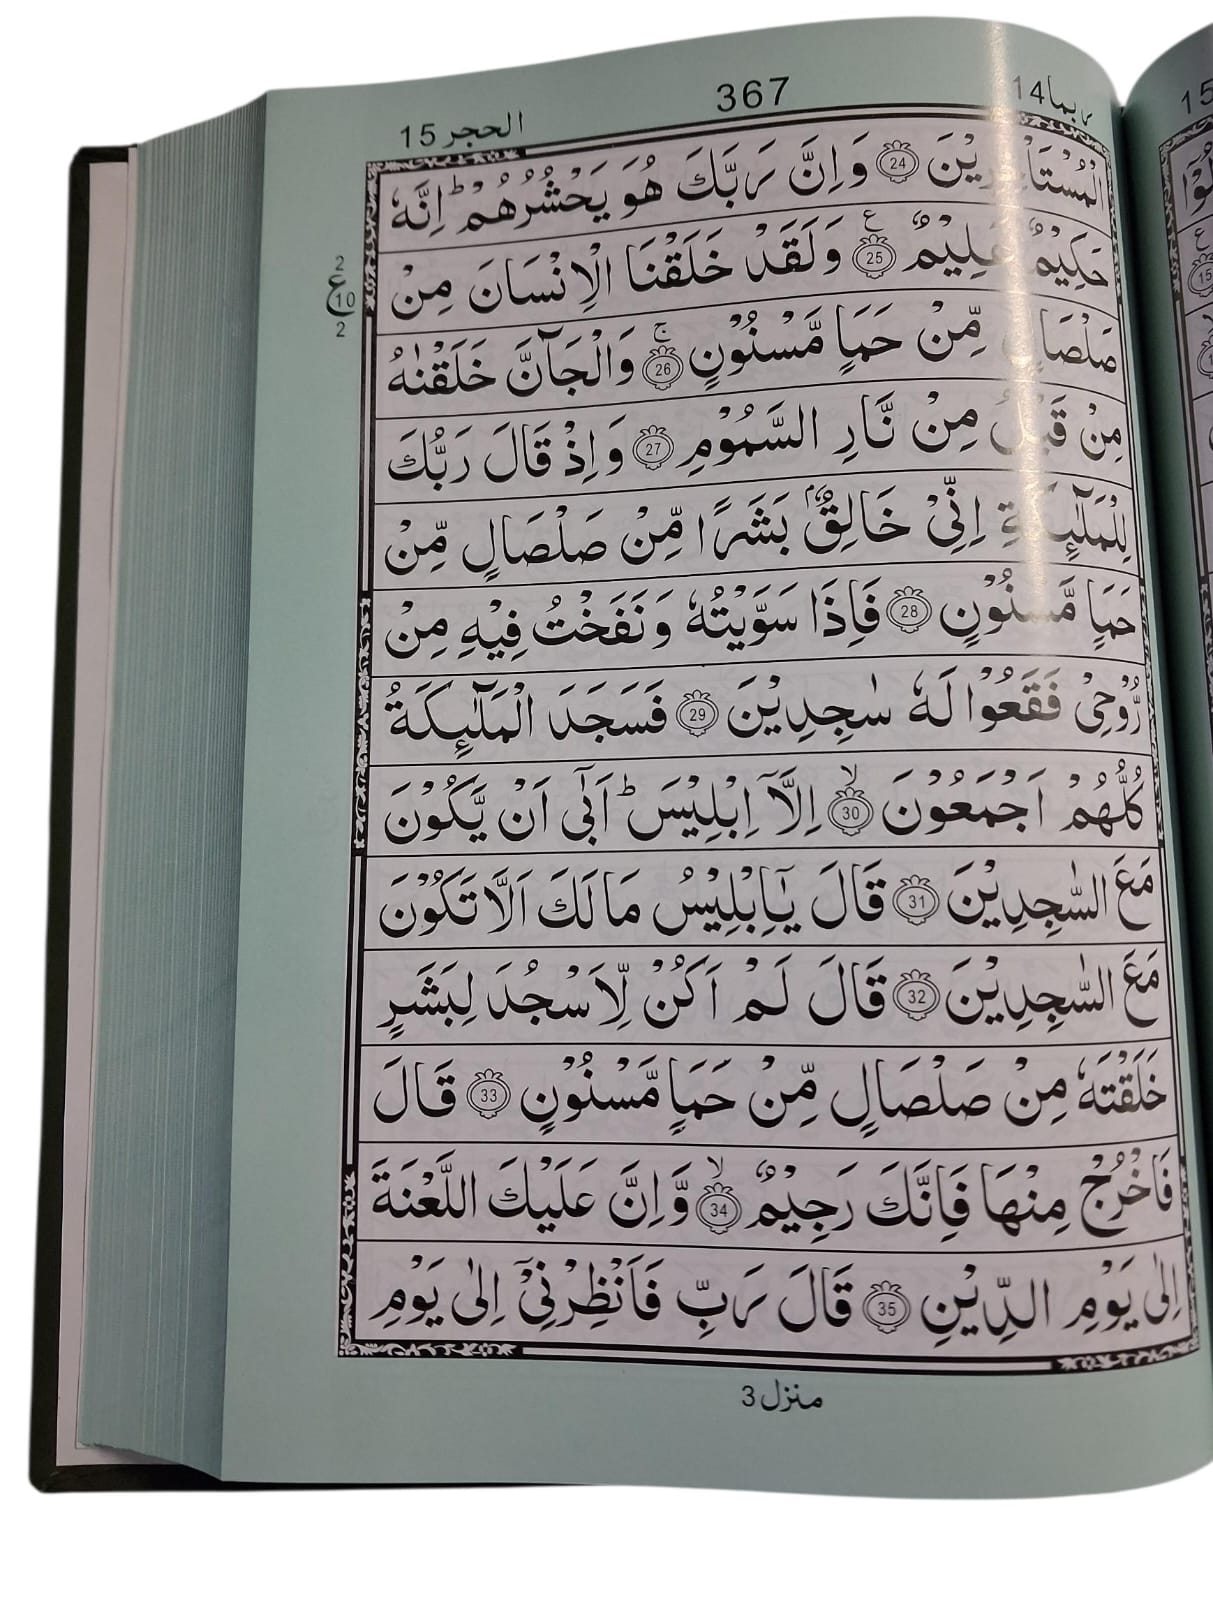 الحجر 15
367
ربما 14
الْمُسْتَاْخِرِيْنَ 24 وَاِنَّ رَبَّكَ هُوَ يَحْشُرُهُمْ ؕ اِنَّهٗ
حَكِيْمٌ عَلِيْمٌ ع 25 وَلَقَدْ خَلَقْنَا الْاِنْسَانَ مِنْ
2
ع 10
2
صَلْصَالٍ مِّنْ حَمَاٍ مَّسْنُوْنٍ ج 26 وَالْجَآنَّ خَلَقْنٰهُ
مِنْ قَبْلُ مِنْ نَّارِ السَّمُوْمِ 27 وَاِذْ قَالَ رَبُّكَ
لِلْمَلٰٓئِكَةِ اِنِّىْ خَالِقٌۢ بَشَرًا مِّنْ صَلْصَالٍ مِّنْ
حَمَاٍ مَّسْنُوْنٍ 28 فَاِذَا سَوَّيْتُهٗ وَنَفَخْتُ فِيْهِ مِنْ
رُّوْحِىْ فَقَعُوْا لَهٗ سٰجِدِيْنَ 29 فَسَجَدَ الْمَلٰٓئِكَةُ
كُلُّهُمْ اَجْمَعُوْنَ لا 30 اِلَّاۤ اِبْلِيْسَ ؕ اَبٰٓى اَنْ يَّكُوْنَ
مَعَ السّٰجِدِيْنَ 31 قَالَ يٰۤاِبْلِيْسُ مَا لَكَ اَلَّا تَكُوْنَ
مَعَ السّٰجِدِيْنَ 32 قَالَ لَمْ اَكُنْ لِّاَسْجُدَ لِبَشَرٍ
خَلَقْتَهٗ مِنْ صَلْصَالٍ مِّنْ حَمَاٍ مَّسْنُوْنٍ 33 قَالَ
فَاخْرُجْ مِنْهَا فَاِنَّكَ رَجِيْمٌ لا 34 وَّاِنَّ عَلَيْكَ اللَّعْنَةَ
اِلٰى يَوْمِ الدِّيْنِ 35 قَالَ رَبِّ فَاَنْظِرْنِىْۤ اِلٰى يَوْمِ
منزل 3